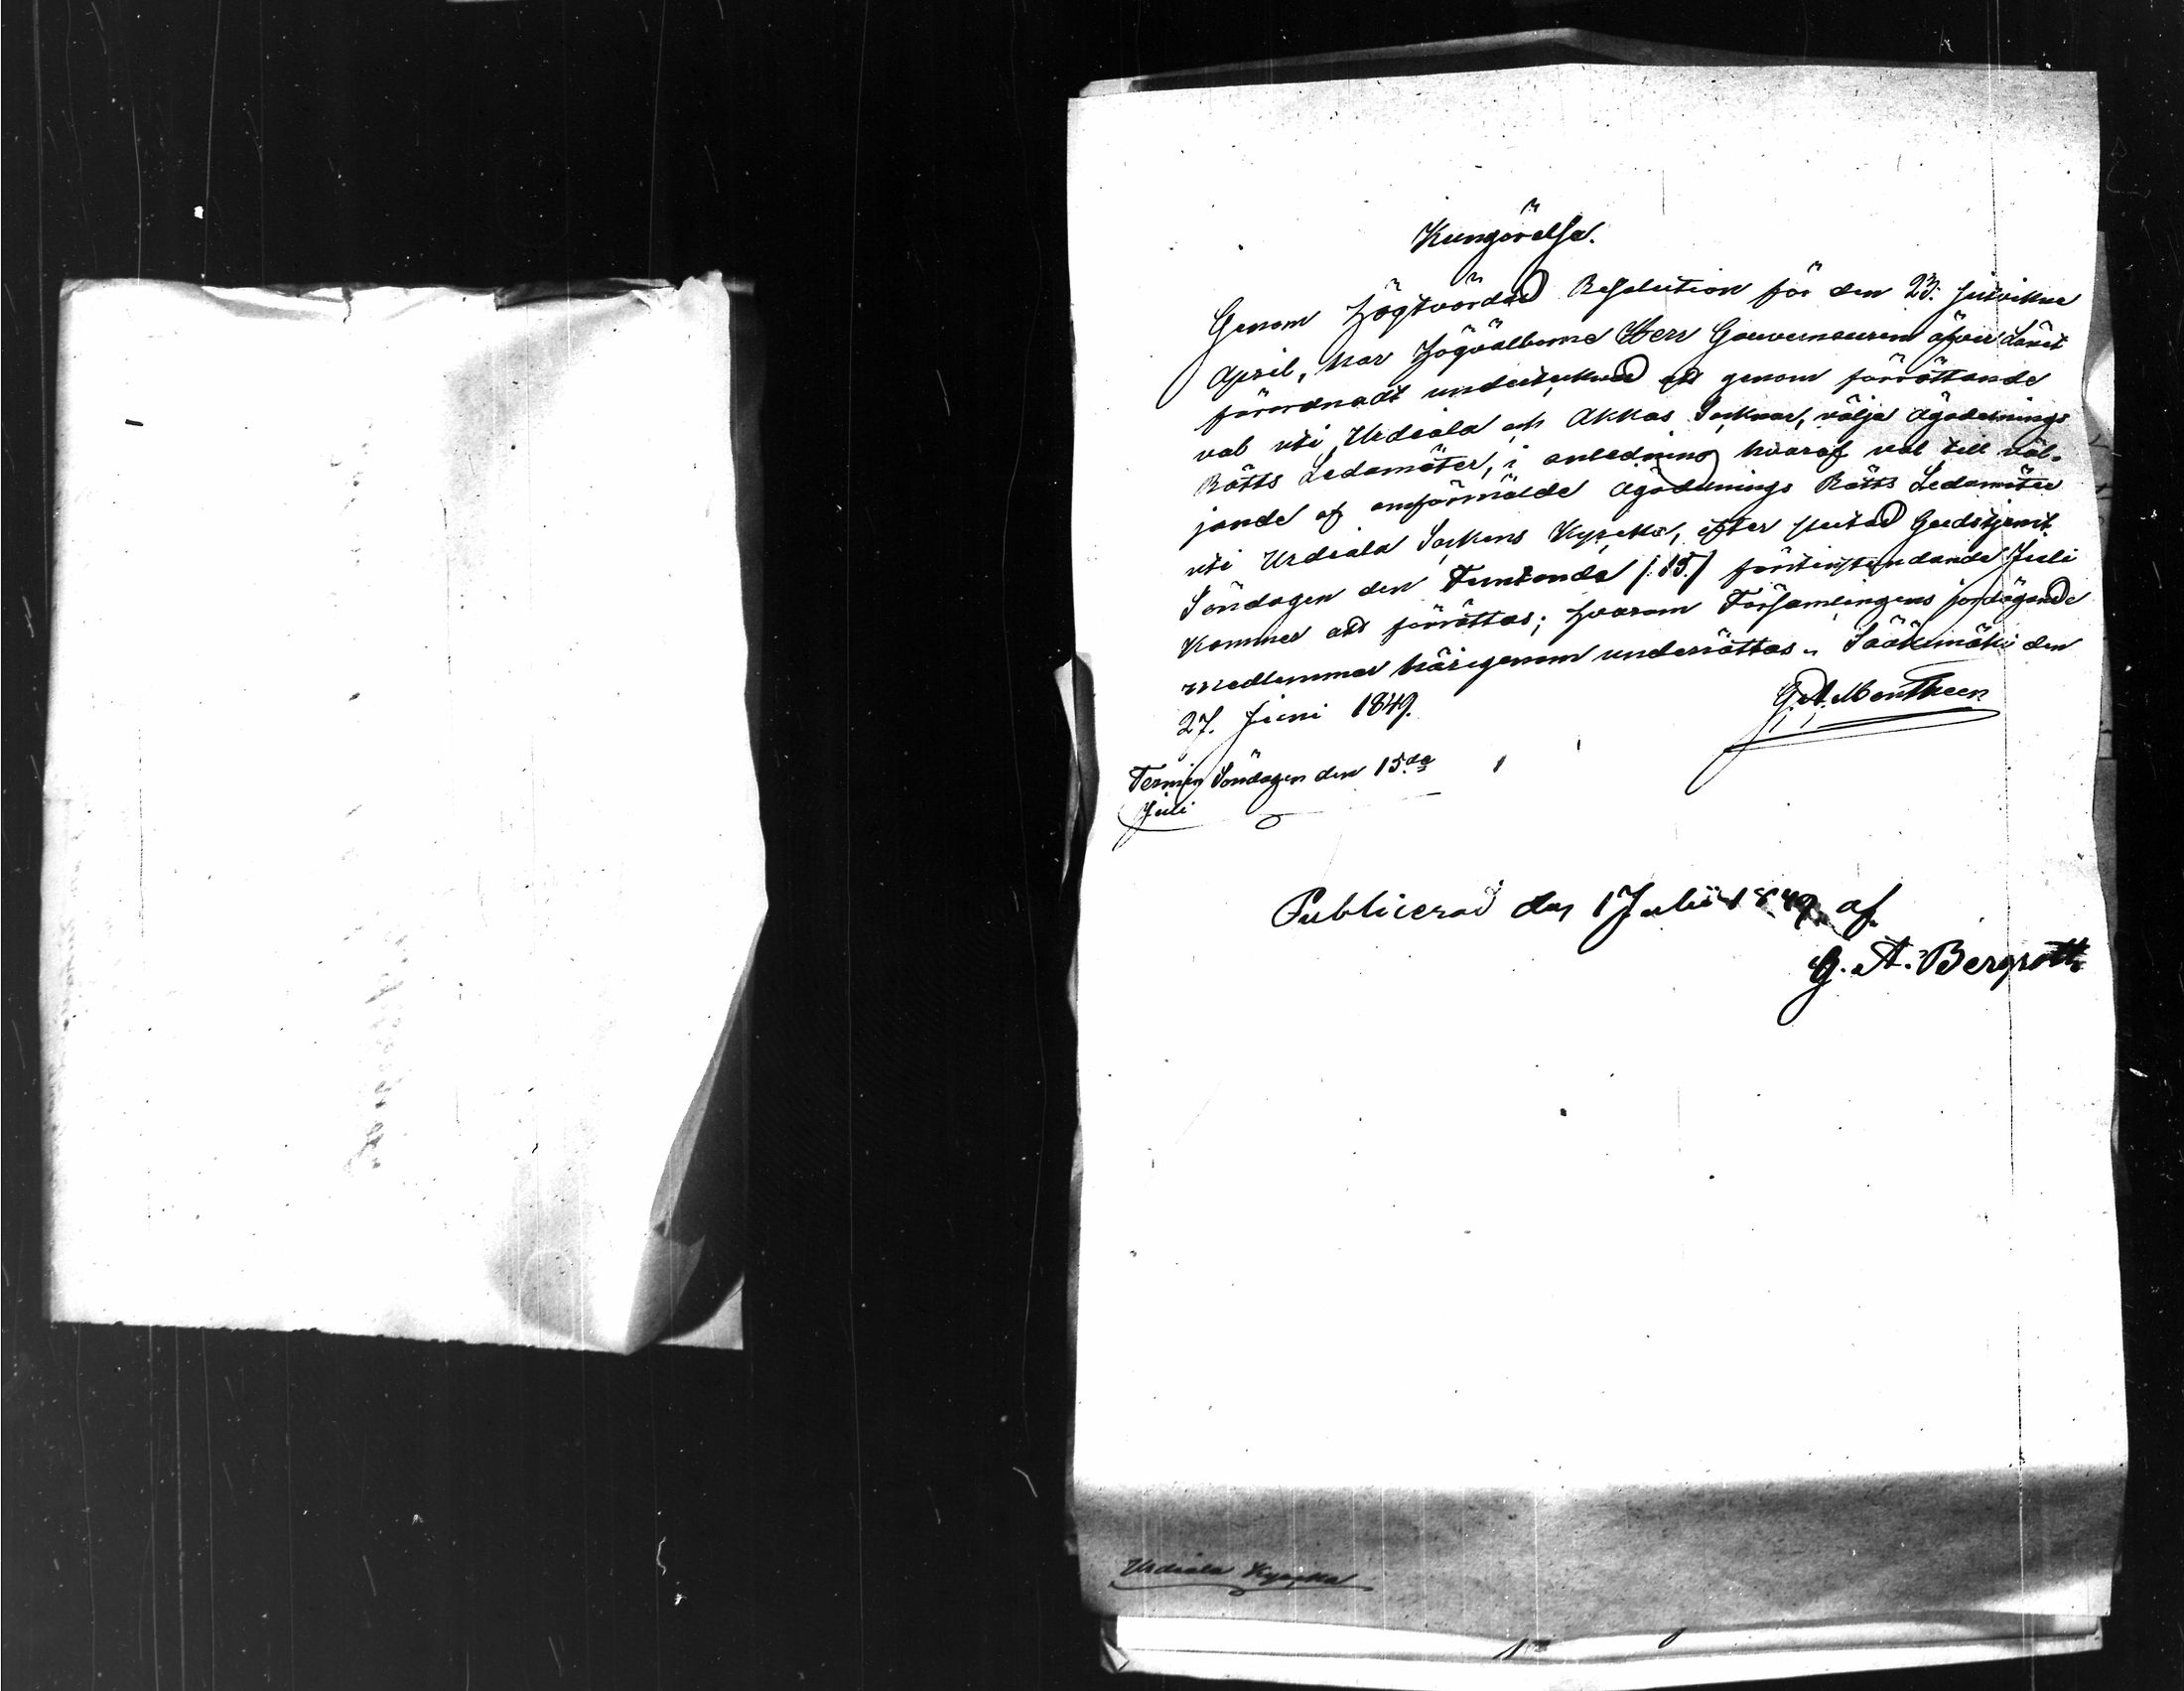 Kungörelse.
Genom högtvördad Resolution för den 23. sistvikne
April, har högvälborne Herr Gouverneuren öfver Länet
förordnadt undertecknad att genom förrättande
val uti Urdiala och Akkas Socknar, välja Ägodelnings
Rätts Ledamöter, i anledning hvaraf val till väl-
jande af omförmälde Ägodelnings Rätts Ledamöter
uti Urdiala Sockens Kyrcka, efter slutad Gudstjenst
Söndagen den Femtonde /:15:/ förstinstundande Juli
kommer att förrättas; hvarom Församlingens jordägande
medlemmar härigenom underrättas. Sääksmäki den
27. Juni 1849.
G. A. Montheen
Termin Söndagen den 15.de
Juli
Publicerad den 1 Julii 1849, af
G. A. Bergroth
Urdiala Kyrcka